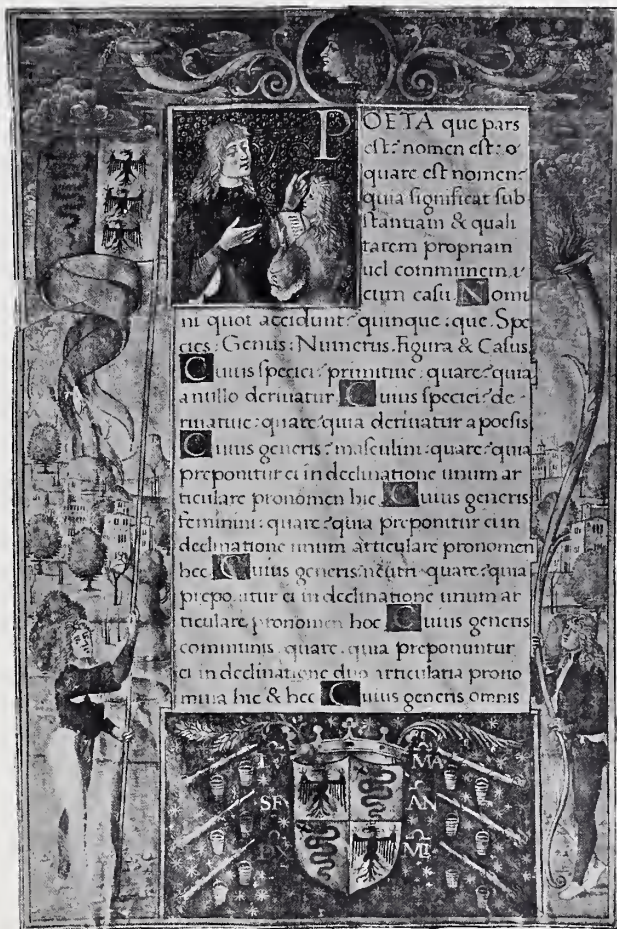 POETA que pars
est? nomen est: o
quare est nomen?
quia significat sub
stantiam & quali
tatem propriam
uel communem.
cum casu. Nomi
ni quot accidunt? quinque: que. Spe
cies: Genus: Numerus. Figura & Casus.
Cuius speciei? primitiue: quare? quia
a nullo deriuatur. Cuius speciei? de-
riuatiue: quare? quia deriuatur a poesis
Cuius generis? masculini: quare? quia
preponitur ei in declinatione unum ar
ticulare pronomen hic. Cuius generis
feminini: quare? quia preponitur ei in
declinatione unum articulare pronomen
hec. Cuius generis: neutri quare? quia
preponitur ei in declinatione unum ar
ticulare pronomen hoc. Cuius generis
communis. quare. quia preponuntur
ei in declinatione duo articularia prono
mina hic & hec. Cuius generis omnis
LV MA
SF AN
MLI